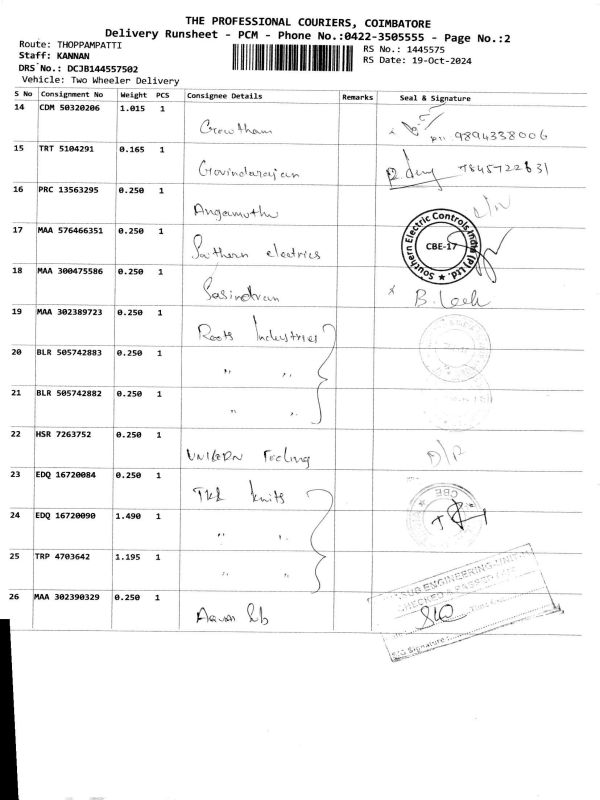 THE PROFESSIONAL COURIERS, COIMBATORE
Delivery Runsheet - PCM - Phone No.:0422-3505555 - Page No.:2
Route: THOPPAMPATTI
Staff: KANNAN
DRS No.: DCJB144557502
Vehicle: Two Wheeler Delivery
RS No.: 1445575
RS Date: 19-Oct-2024
S No Consignment No Weight PCS Consignee Details Remarks Seal & Signature
14 CDM 50320206 1.015 1 Gowtham 9894338006
15 TRT 5104291 0.165 1 Govindarajan
16 PRC 13563295 0.250 1 Angamuthu
17 MAA 576466351 0.250 1 Southern electrics
Southern Electric Controls India (P) Ltd.
CBE-17
18 MAA 300475586 0.250 1 B.
19 MAA 302389723 0.250 1 Roots Industries
20 BLR 505742883 0.250 1 " "
21 BLR 505742882 0.250 1 " "
22 HSR 7263752 0.250 1
23 EDQ 16720084 0.250 1 knits
CBE
24 EDQ 16720090 1.490 1 " "
25 TRP 4703642 1.195 1 " "
26 MAA 302390329 0.250 1
ENGINEERING UNIT
CHECKED & PASSED
Signature